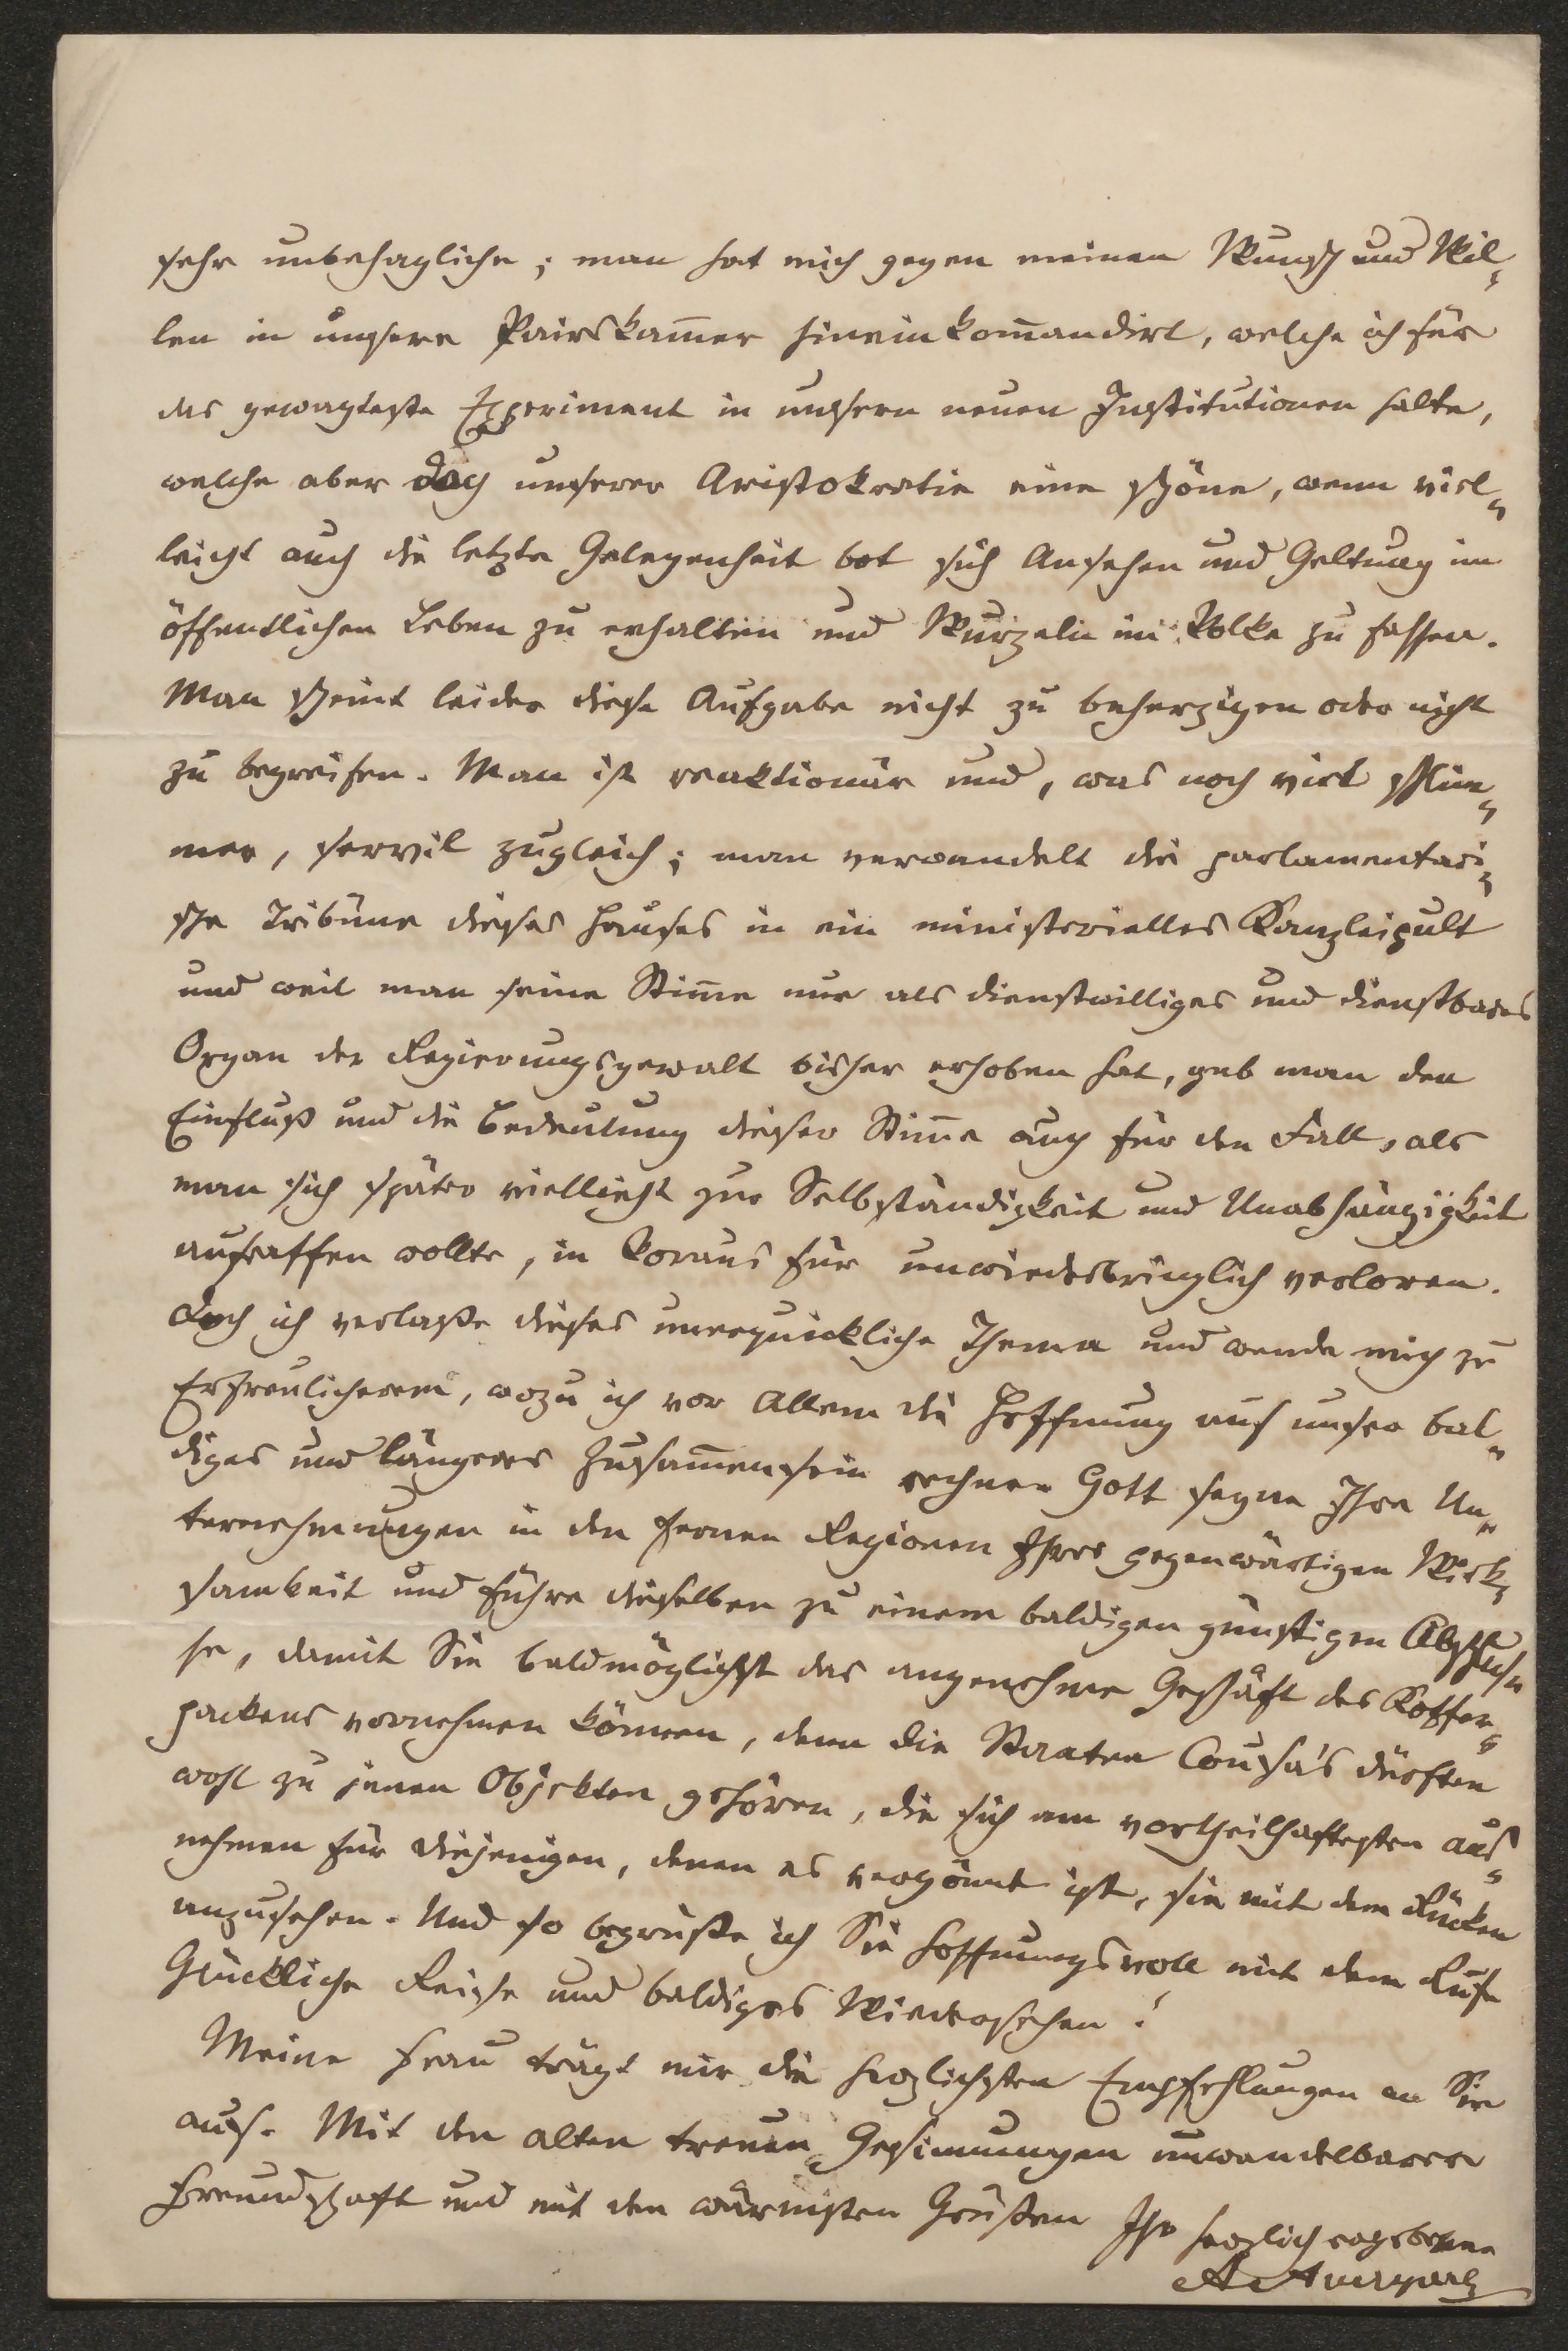 sehr unbehagliche; man hat mich gegen meinen Wunsch und Wil-
len in unsere Pairskam̄er hineinkom̄andirt, welche ich für
das gewagteste Experiment in unsern neuen Institutionen halte,
welche aber doch unserer Aristokratie eine schöne, wenn viel-
leicht auch die letzte Gelegenheit bot sich Ansehen und Geltung im
öffentlichen Leben zu erhalten und Wurzeln im Volke zu fassen.
Man scheint leider diese Aufgabe nicht zu beherzigen oder nicht
zu begreifen. Man ist reaktionär und, was noch viel schlim-
mer, servil zugleich; man verwandelt die parlamentari-
sche Tribüne dieses Hauses in ein ministerielles Kanzleipult
und weil man seine Stim̄e nur als dienstwilliges und dienstbares
Organ der Regierungsgewalt bisher erhoben hat, gab man den
Einfluß und die Bedeutung dieser Stim̄e auch für den Fall, als
man sich später vielleicht zur Selbständigkeit und Unabhängigkeit
aufraffen wollte, in Voraus für unwiederbringlich verloren.
Doch ich verlaße dieses unerquickliche Thema und wende mich zu
Erfreulicherem, wozu ich vor Allem die Hoffnung auf unser bal-
diges und längeres Zusam̄ensein rechne. Gott segne Ihre Un-
ternehmungen in den fernen Regionen Ihrer gegenwärtigen Wirk-
samkeit und führe dieselben zu einem baldigen günstigen Abschlus-
se, damit Sie baldmöglichst das angenehme Geschäft des Koffer-
packens vornehmen können, denn die Staaten Cousa's dürften
wohl zu jenen Objekten gehören, die sich am vortheilhaftesten aus-
nehmen für diejenigen, denen es vergönnt ist, sie mit dem Rücken
anzusehen. Und so begrüße ich Sie hoffnungsvoll mit dem Rufe
Glückliche Reise und baldiges Wiedersehen!
Meine Frau trägt mir die herzlichsten Empfehlungen an Sie
auf. Mit den alten treuen Gesinnungen unwandelbarer
Freundschaft und mit den wärmsten Grüßen Ihr herzlich ergebener
A Auersperg